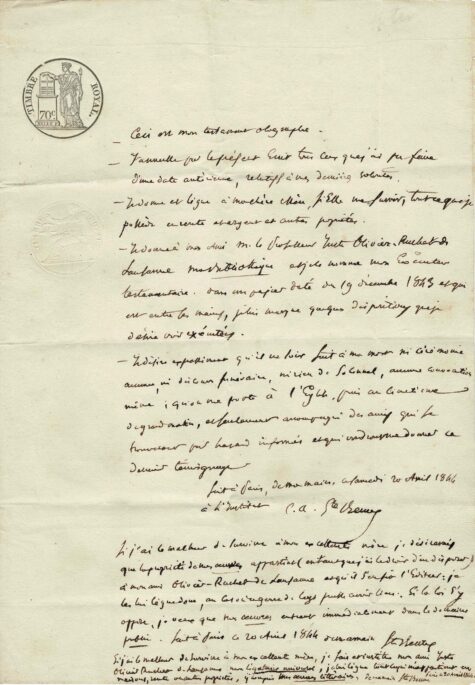 TIMBRE ROYAL
70c
Ceci est mon testament olographe.
— J'annulle par le présent écrit tous ceux que j'ai pu faire
d'une date antérieure, relatifs à mes dernières volontés.
— Je donne et lègue à ma chère Mère, si Elle me survit, tout ce que je
possède en rente et argent et autres propriétés.
— Je donne à mon ami M. le Professeur Juste Olivier-Ruchet de
Lausanne ma Bibliothèque et je le nomme mon Exécuteur
testamentaire. Dans un papier daté du 19 décembre 1843 et qui
est entre ses mains, j'ai marqué quelques dispositions que je
désire voir exécutées.
— Je désire expressément qu'il ne soit fait à ma mort ni cérémonie
aucune, ni discours funéraire, ni rien de solennel, aucune convocation
même; qu'on me porte à l'Église, puis au cimetière
de grand matin, et seulement accompagné des amis qui se
trouveront par hasard informés et qui voudront me donner ce
dernier témoignage
fait à Paris, de ma main, ce samedi 20 avril 1844
à l'Institut C. A. Ste Beuve
Si j'ai le malheur de survivre à mon excellente mère, je désirerais
que la propriété de mes œuvres appartînt (en tant que j'ai le droit d'en disposer)
à mon ami Olivier-Ruchet de Lausanne et qu'il en fût l'Éditeur; je
les lui lègue donc, au cas où ce genre de legs puisse avoir lieu. Si la loi s'y
oppose, je veux que mes œuvres entrent immédiatement dans le domaine
public. fait à Paris ce 20 avril 1844 de ma main Ste Beuve
Si j'ai le malheur de survivre à mon excellente mère, je fais et institue mon ami Juste
Olivier Ruchet de Lausanne mon légataire universel, je lui lègue tout ce qui m'appartient en
œuvres littéraires. Ste Beuve